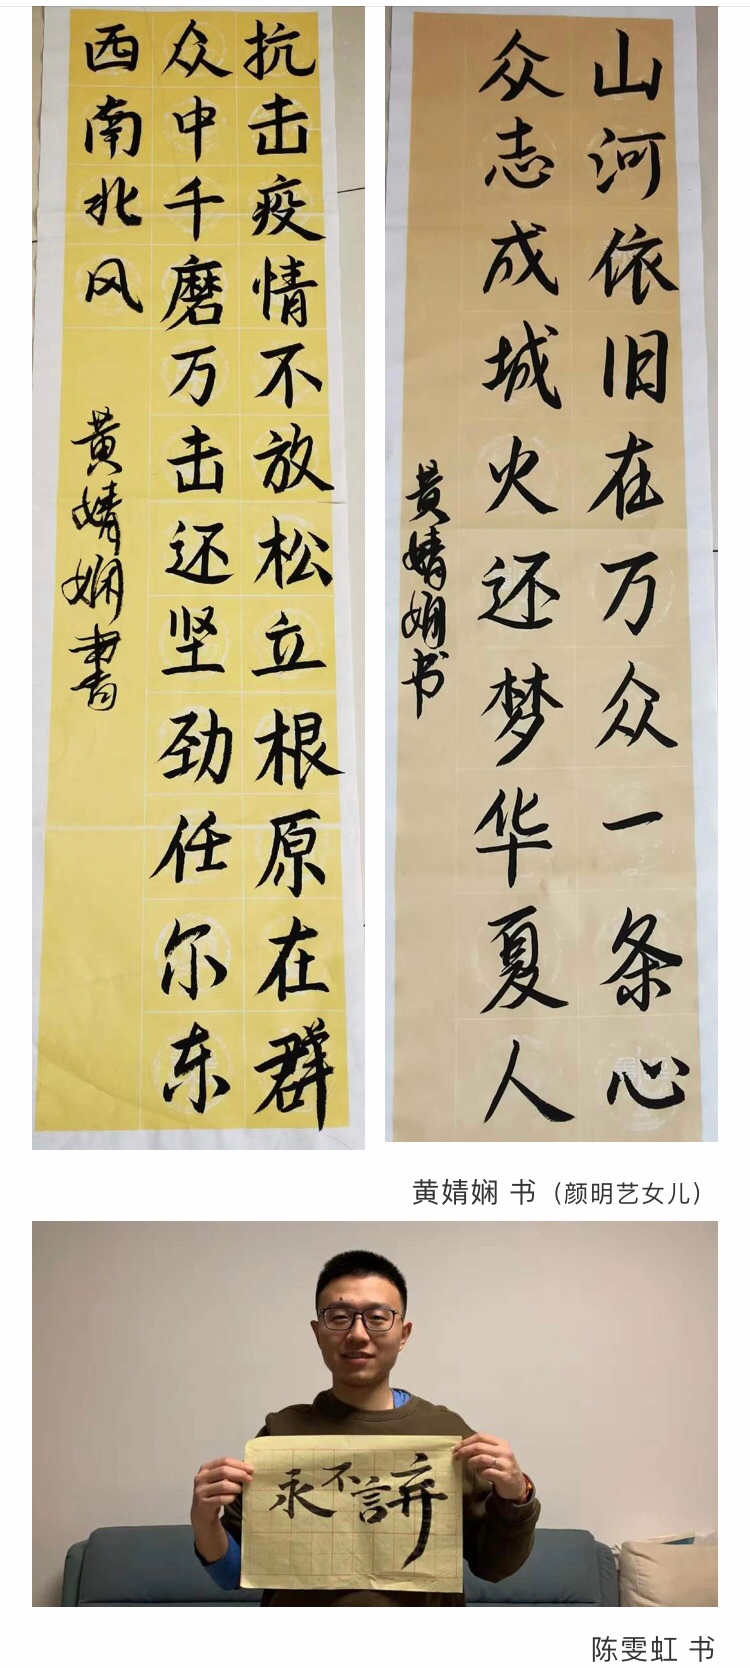 抗击疫情不放松立根原在群
众中千磨万击还坚劲任尔东
西南北风
黄婧娴書
山河依旧在万众一条心
众志成城火还梦华夏人
黄婧娴书
黄婧娴 书（颜明艺女儿）
永不言弃
陈雯虹 书